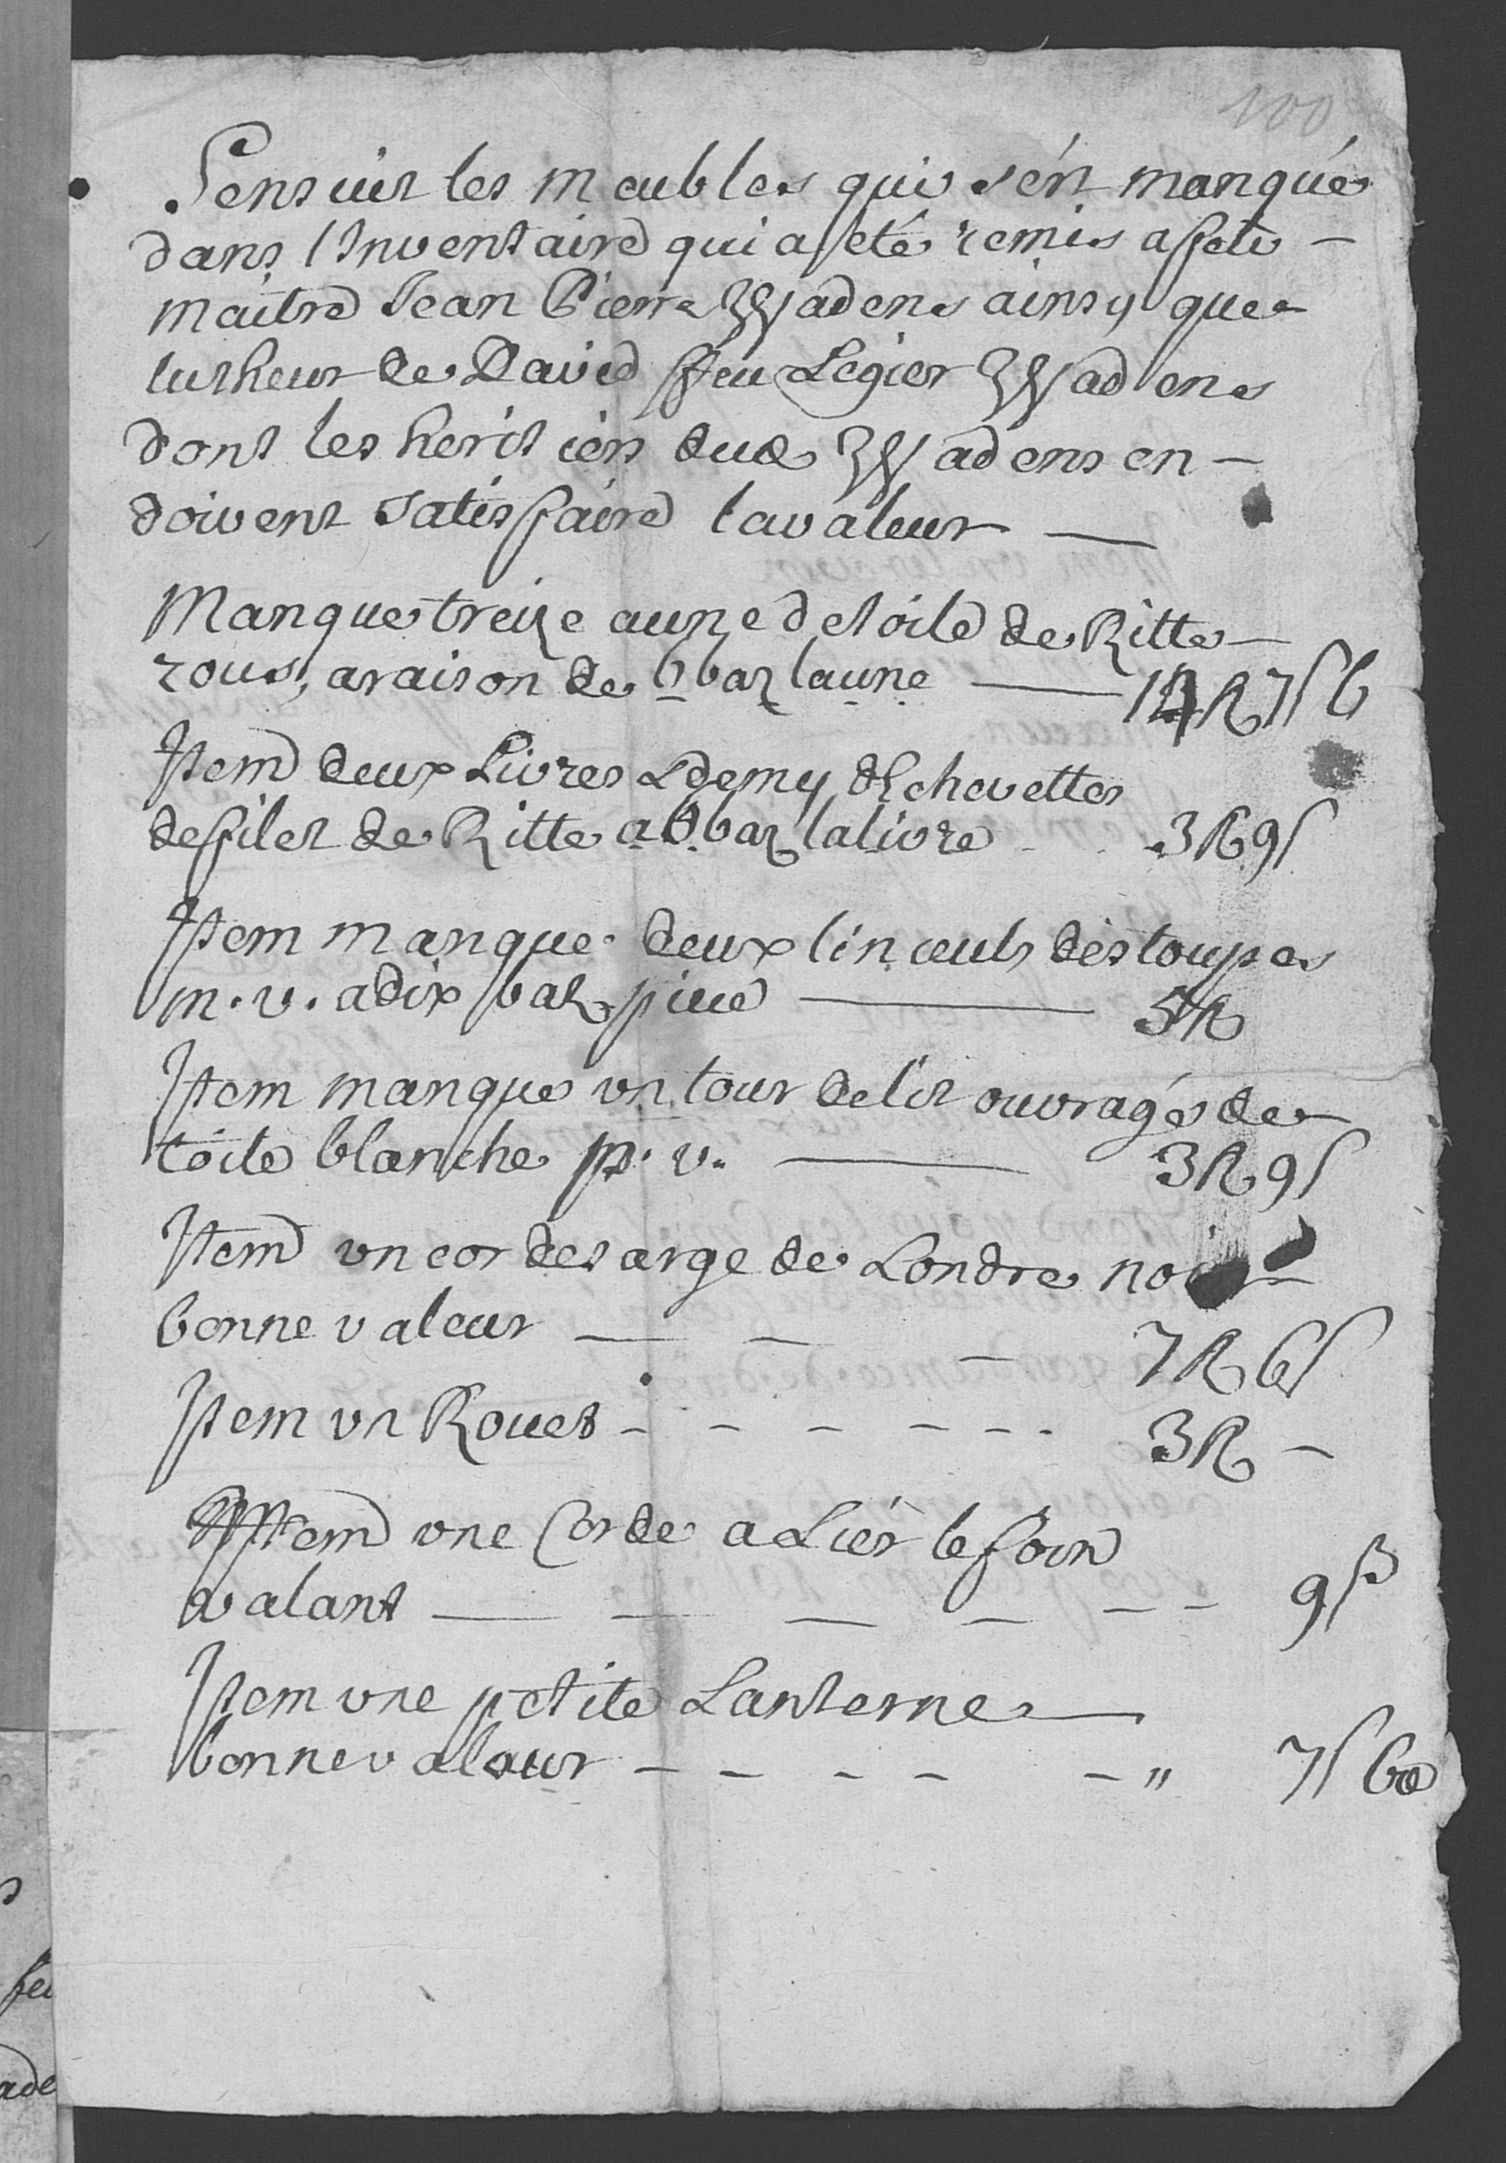 100
Sensuit les meubles qui sént manqué
dans lInventaire qui a été remis a feu
maitre Jean Pierre Wadens ainsy que
tutheur de David ffeu Legier Wadens
dont les heritiers dud Wadens en
doivent satisfaire la valeur
Manque treize aune de toile de Ritte
rous, a raison de 6 baz laune 14 R 7 s 6
Item deux Livres & demy dEchevettes
de filet de Ritte a 6 baz la livre 3 R 9 s
Item manque deux linceuls déstoupes
m. v. a dix baz piece 5 R
Item manque un tour de lit ouvragé de
toile blanche p. v. 3 R 9 s
Item un cor de sarge de Londre noir
bonne valeur 7 R 6 s
Item un Rouet 3 R
Item une Corde a Liér le foin
valant 9 ß
Item une petite Lanterne
bonne valeur " 7 s 6 d
feu
ade